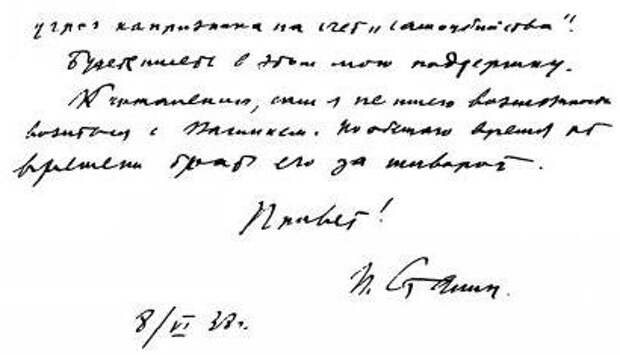 угроз капризника на счет „самоубийства“.
Будете иметь в этом мою поддержку.
К сожалению, сам я не имею возможности
возиться с Василием. Но обещаю время от
времени брать его за шиворот.
Привет!
И. Сталин.
8/VI 38г.